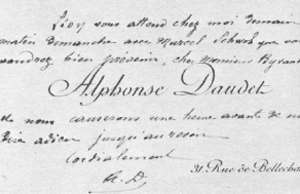 Léon vous attend chez moi demain
matin dimanche avec Marcel Schwob que vous
voudrez bien prévenir, cher Monsieur Byvanck
Alphonse Daudet
et nous causerons une heure avant de nous
dire adieu jusqu'au revoir
Cordialement
A. D.
31, Rue de Bellechasse